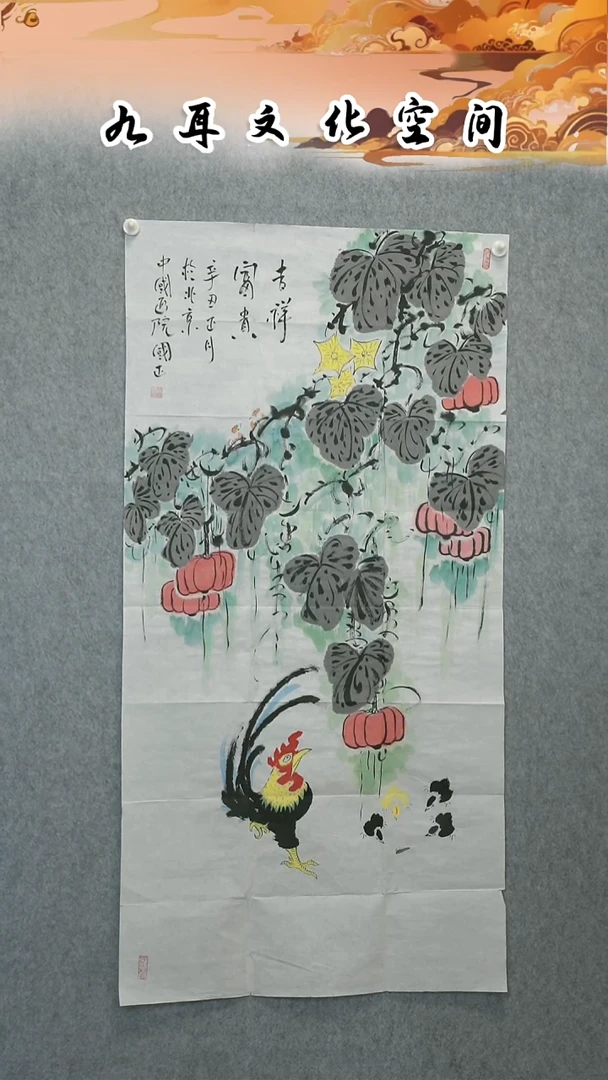 九耳文化空间
吉祥
富贵
辛丑正月
於北京
中國画院國正